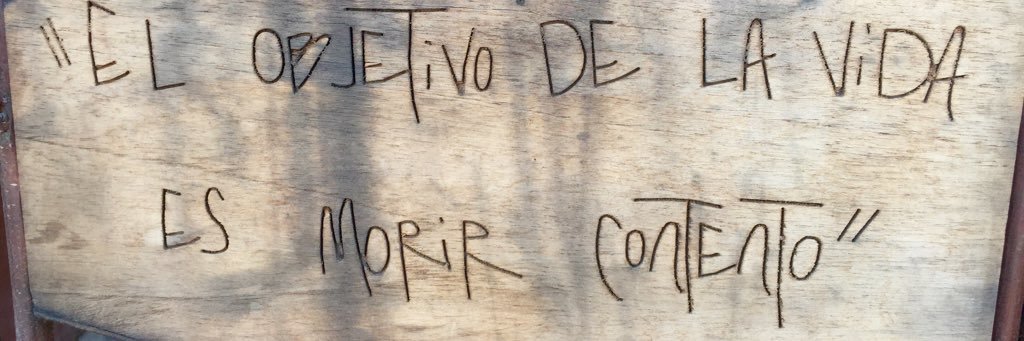 "EL OBJETiVO DE LA ViDA
ES MORiR CONTENTO"